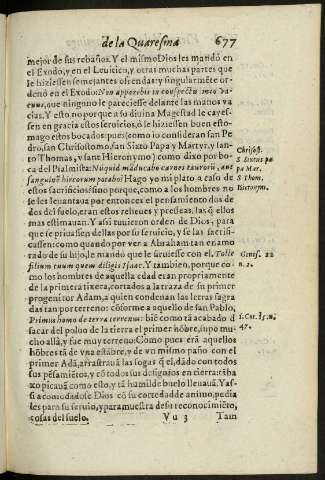 de la Quaresma 677
mejor de sus rebaños. Y el mismo Dios les mandó en
el Exodo, y en el Leuitico, y otras muchas partes que
le hiziessen semejantes ofrendas: y singularmēte or-
denó en el Exodo: Non apparebis in conspectu meo va-
cuus, que ninguno le pareciesse delante las manos va
cias. Y esto, no porque a su diuina Magestad le cayes-
sen en gracia estos seruicios, o le hiziessen buen esto-
mago estos bocados: pues (como lo consideran san Pe
dro, san Chrisostomo, san Sixto Papa y Martyr, y san-
to Thomas, y sant Hieronymo) como dixo por bo-
ca del Psalmista: Nūquid māducabo carnes taurorū, aut
sanguinē hircorum potabo? Hago yo mi plato a caso de
estos sacrificios? sino porque, como a los hombres no
se les leuantaua por entonces el pensamiento dos de-
dos del suelo, eran estos relieues y presseas, las q̃ ellos
mas estimauan. Y assi tuuieron orden de Dios, para
que se priuassen dellas por su seruicio, y se las sacrifi-
cassen: como quando por ver a Abraham tan enamo
rado de su hijo, le mandó que le siruiesse con el. Tolle
filium tuum quem diligis Isaac. Y tambien, porque co-
mo los hombres de aquella edad eran propiamente
de la primera tixera, cortados a la traza de su primer
progenitor Adam, a quien condenan las letras sagra
das tan por terreno: cōforme a aquello de san Pablo,
Primus homo de terra terrenus: biē como tā acabado d
sacar del poluo de la tierra el primer hōbre, supo mu-
cho allà, y fue muy terreno: Como pues erā aquellos
hōbres tā de vna estābre, y de vn mismo paño con el
primer Adā, arrastraua las sogas q̃ el, dādo con todos
sus pēsamiētos, y cō todos sus desigños en tierra: tāba
xo picauā como esto, y tā humilde buelo lleuauā. Yas-
si acomodādose Dios cō su cortedad de animo, pedia
les para su seruio, y para muestra de su reconocimiēto,
cosas del suelo. Vu 3 Tam
Chrisost.
S. Sixtus pa
pa Mar.
S. Thom.
Hieronym.
Genes. 22
n. 2.
1. Cor. 15. n.
47.